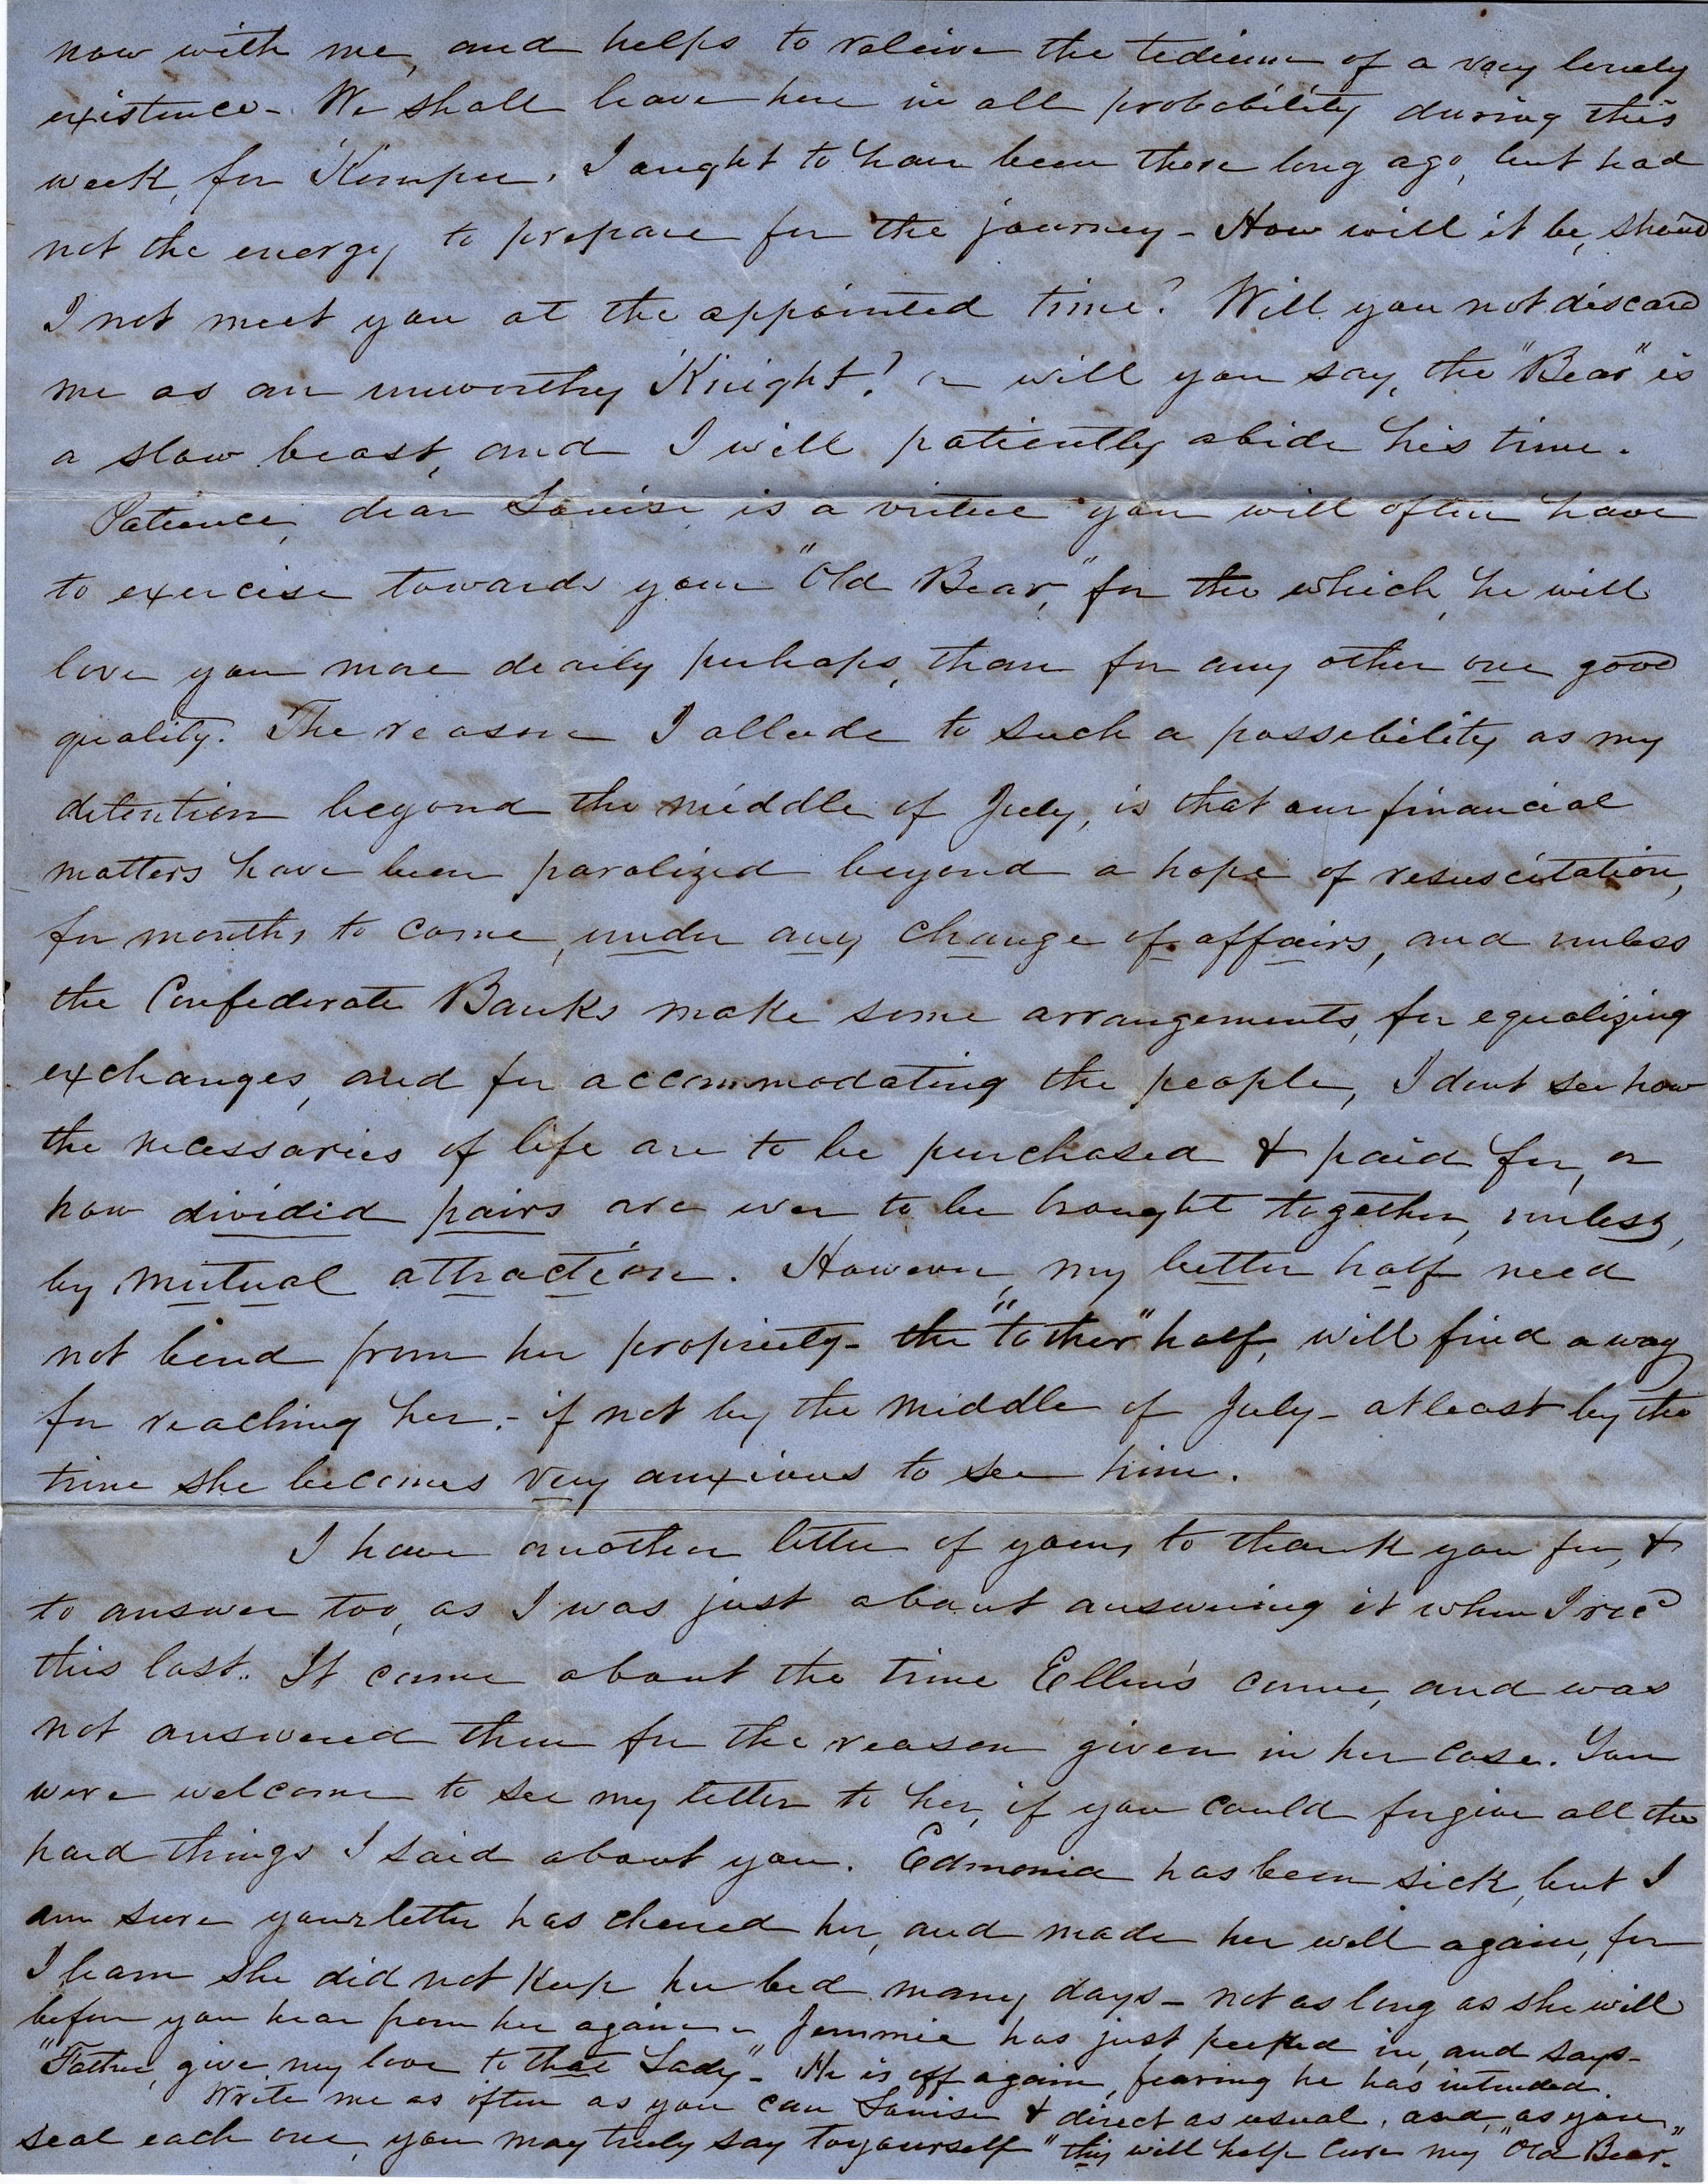 now with me, and helps to releive the tedium of a very lonely
existence - We shall leave here in all probability during this
week, for Kemper. I ought to have been there long ago, but had
not the energy to prepare for the journey - How will it be, should
I not meet you at the appointed time? Will you not discard
me as an unworthy Knight? or will you say, the "Bear" is
a slow beast, and I will patiently abide his time.
Patience, dear Louise, is a virtue you will often have
to exercise towards your "Old Bear," for the which, he will
love you more dearly perhaps, than for any other one good
quality. The reason I allude to such a possibility as my
detention beyond the middle of July, is that our financial
matters have been paralized beyond a hope of resuscitation,
for months to come, under any change of affairs, and unless
the Confederate Banks make some arrangements, for equalizing
exchanges, and for accommodating the people, I dont see how
the necessaries of life are to be purchased & paid for, or
how divided pairs are ever to be brought together, unless,
by mutual attraction. However, my better half need
not bend from her propriety - the "tother" half, will find a way
for reaching her, - if not by the middle of July - at least by the
time she becomes very anxious to see him.
I have another letter of yours to thank you for, &
to answer too, as I was just about answering it when I recd
this last. It came about the time Ellen's came, and was
not answered then for the reason given in her case. You
were welcome to see my letter to her, if you could forgive all the
hard things I said about you. Edmonia has been sick, but I
am sure your letter has cheered her, and made her well again, for
I learn she did not keep her bed many days - not as long as she will
before you hear from her again - Jemmie has just peeped in, and says -
"Father, give my love to that Lady" - He is off again, fearing he has intruded.
Write me as often as you can Louise & direct as usual, and, as you
seal each one, you may truly say to yourself "this will help cure my "Old Bear."